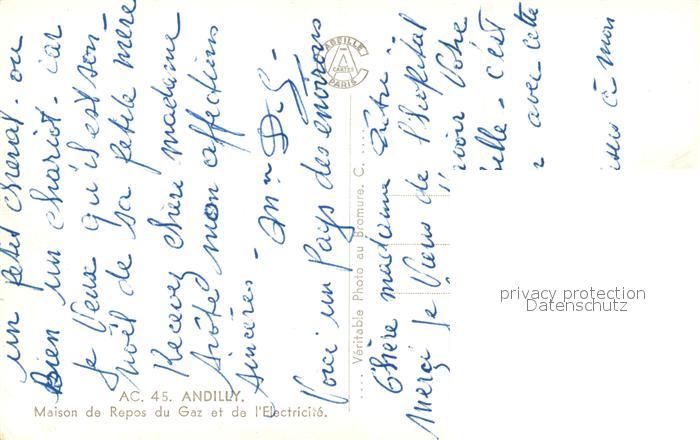 Chère madame Entri
Merci je Viens de l'hopital
voir Votre
elle - c'est
avec cette
à mon
un petit cheval. ou
bien un chariot - car
je Veux qu'il est son
noël de sa petite mère
Recevez chère madame
mon affections
sincères - Mme D.G.
Voici un pays des environs
ABEILLE
CARTES
PARIS
.... Véritable Photo au Bromure. C. ....
AC. 45. ANDILLY.
Maison de Repos du Gaz et de l'Electricité.
privacy protection
Datenschutz